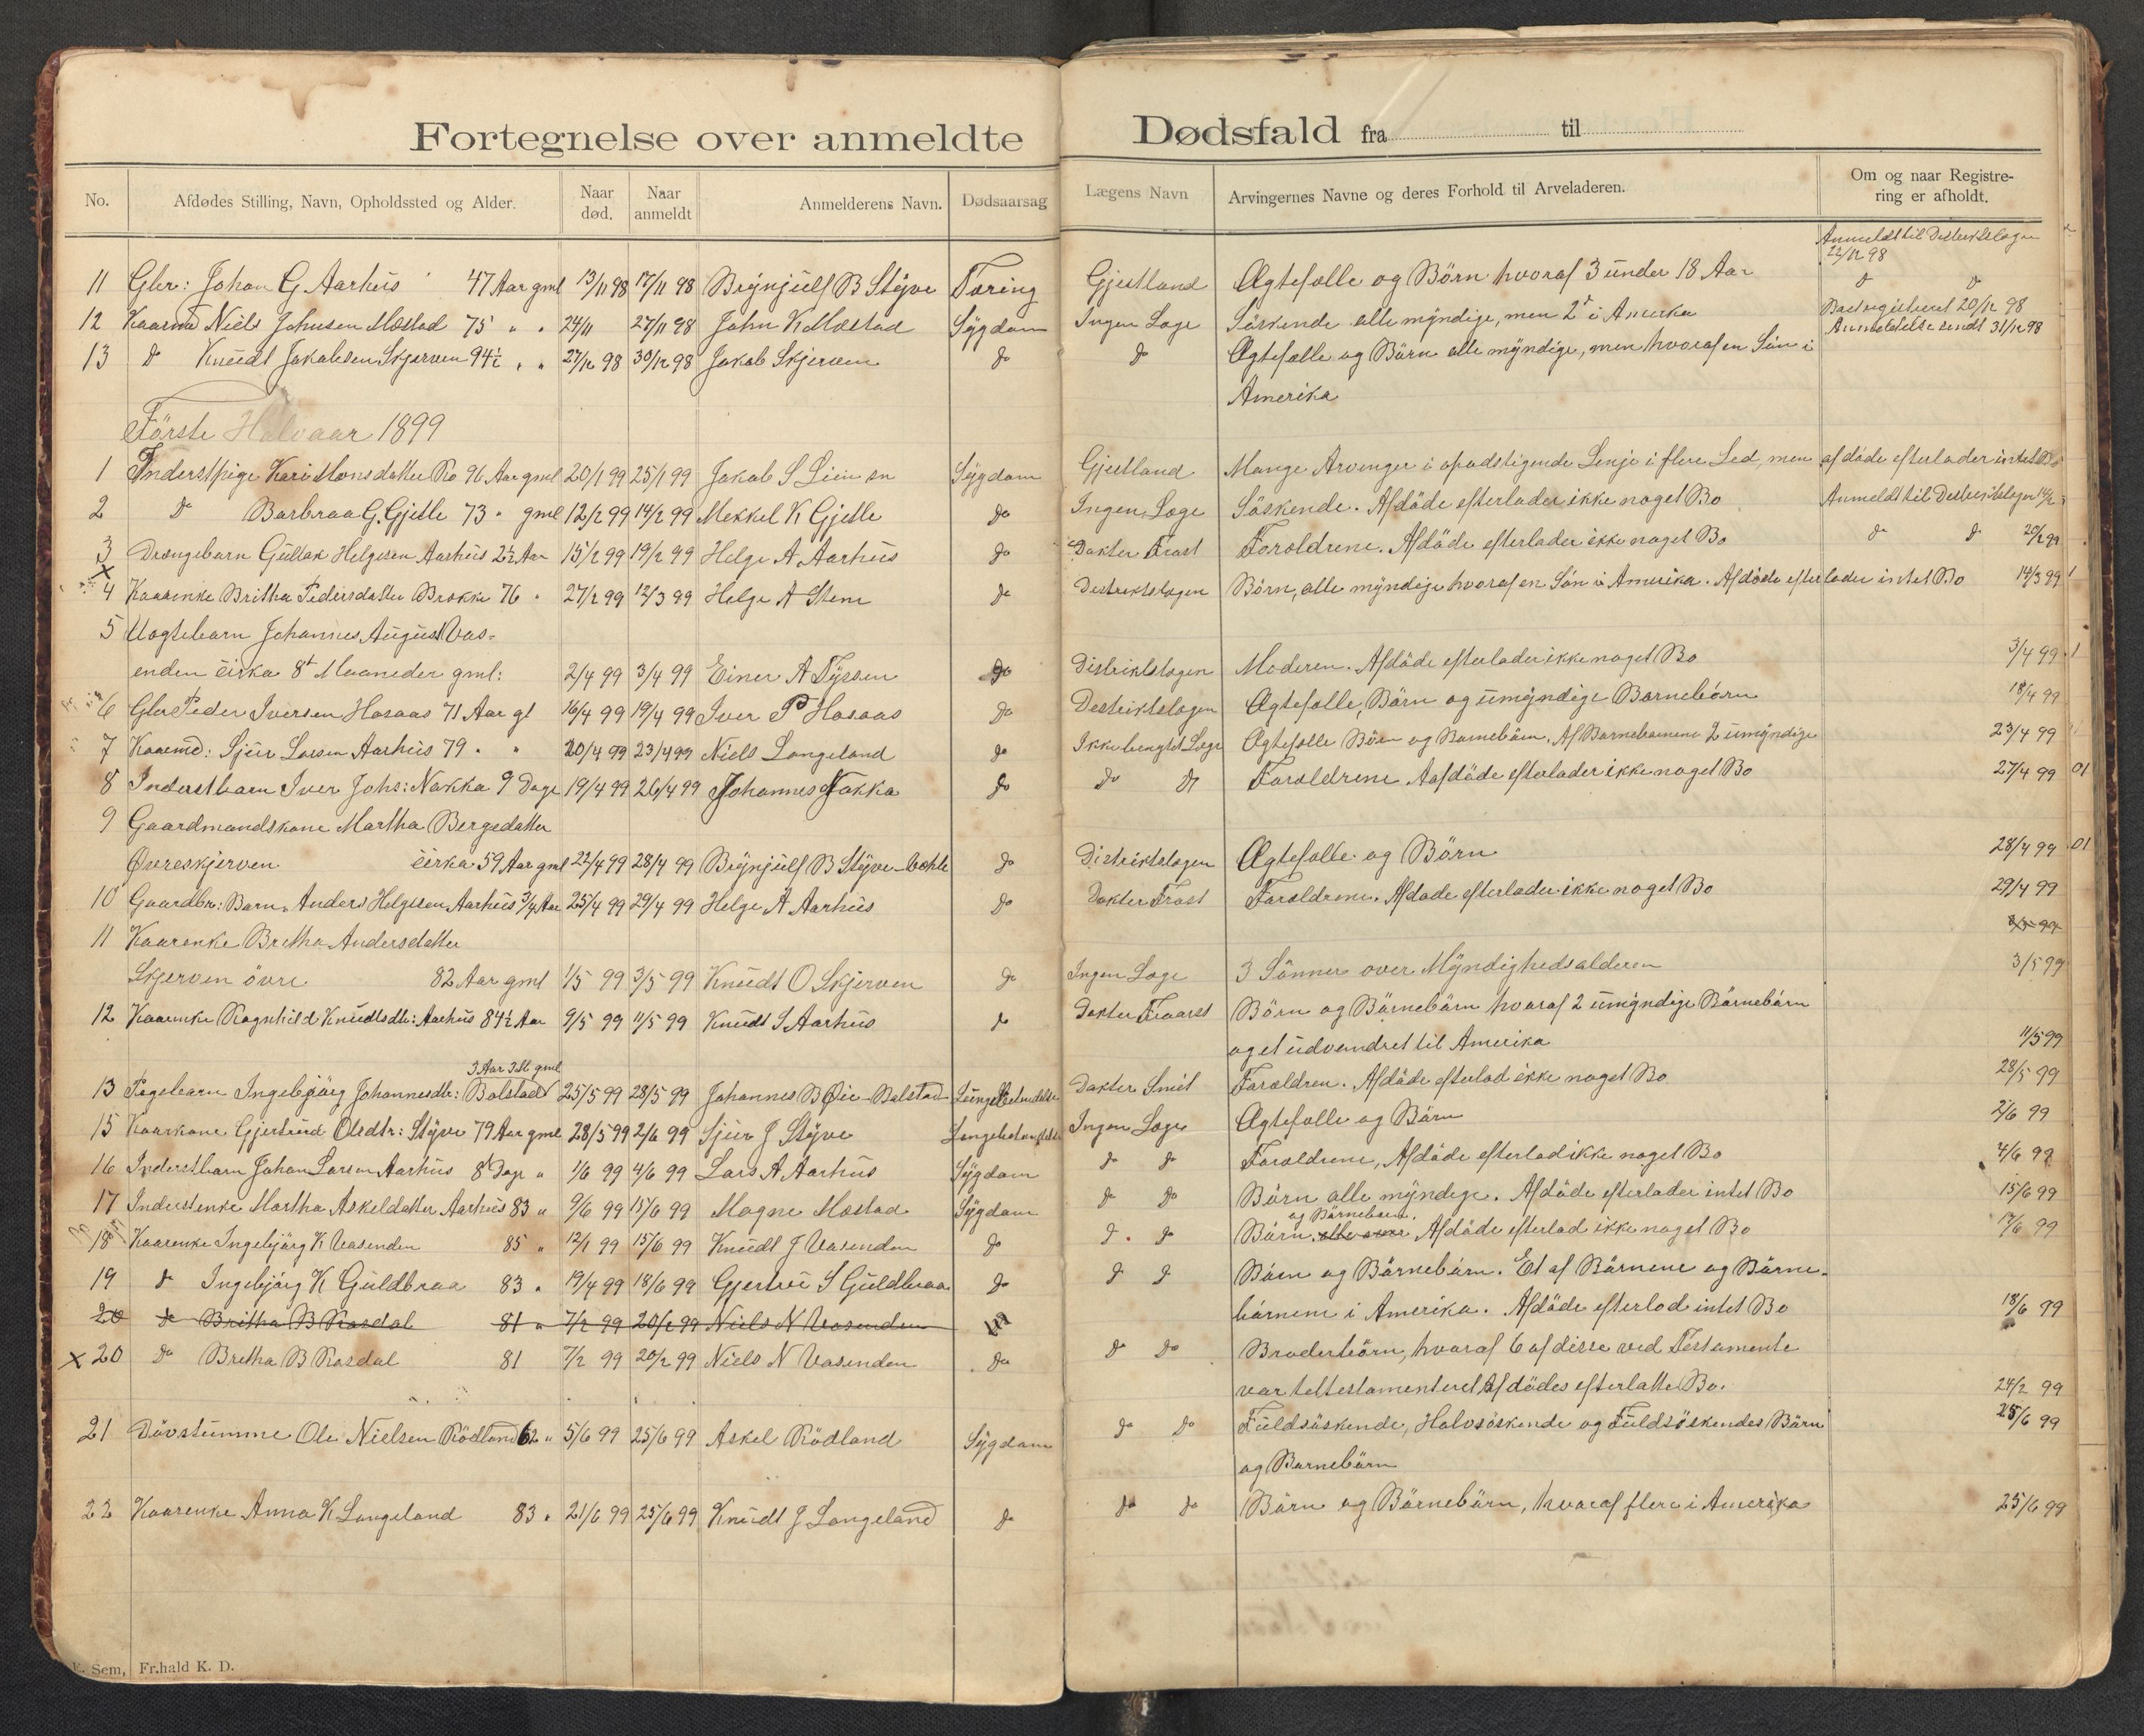 Fortegnelse over anmeldte Dødsfald fra til
No. Afdødes Stilling, Navn, Opholdssted og Alder. Naar død. Naar anmeldt Anmelderens Navn. Dødsaarsag Lægens Navn Arvingernes Navne og deres Forhold til Arveladeren. Om og naar Registrering er afholdt.
Anmeldt til Destriktslægen
22/12 98
11 Gbr: Johan G. Aarhus 47 Aar gml 13/11 98 17/11 98 Brynjulf B Styve Tæring Gjestland Ægtefælle og Börn hvoraf 3 under 18 Aar do do
12 Kaarmd Niels Johnsen Mæstad 75 " " 24/11 27/11 98 John K Mæstad Sygdom Ingen Læge Söskende alle myndige, men 2 i Amerika Boet registreret 20/12 98
Anmeldelse sendt 31/12 98
13 do Knudt Jakobsen Skjerven 94½ " " 27/12 98 30/12 98 Jakob Skjerven do do Ægtefælle og Börn alle myndige, men hvoraf en Sön i
Amerika
Förste Halvaar 1899
1 Inderstpige Kari Monsdatter Ro 96 Aar gml 20/1 99 25/1 99 Jakob S Liien Sygdom Gjestland Mange Arvinger i opadstigende Linje i flere Led, men afdöde efterlader intet Bo
2 do Barbraa G. Gjelle 73 " gml 12/2 99 14/2 99 Mekkel K Gjelle do Ingen Læge Söskende. Afdöde efterlader ikke noget Bo Anmeldt til Destriktslægen 14/2
3 Drengebarn Gullak Helgesen Aarhus 2½ Aar 15/2 99 19/2 99 Helge A Aarhus do Dokter Frost Forældrene. Afdöde efterlader ikke noget Bo do do 20/2 99
X
4 Kaarenke Britha Pedersdatter Brække 76 " 27/2 99 12/3 99 Helge A Stene do Destriktslægen Börn, alle myndige hvoraf en Sön i Amerika. Afdöde efterlader intet Bo 14/3 99
5 Uægtebarn Johannes August Vas-
enden cirka 8 Maaneder gml: 2/4 99 3/4 99 Einer A Tyssen do Distriktslægen Moderen. Afdöde efterlader ikke noget Bo 3/4 99
6 Gbr Peder Iversen Hosaas 71 Aar gl 16/4 99 19/4 99 Iver P Hosaas do Destriktslægen Ægtefælle, Börn og umyndige Barnebörn 18/4 99
7 Kaarmd: Sjur Larsen Aarhus 79 " " 20/4 99 23/4 99 Niels Langeland do Ikke benyttet Læge Ægtefælle Börn og Barnebörn. Af Barnebörnene 2 umyndige 23/4 99
8 Inderstbarn Iver Johs: Nakka 9 Dage 19/4 99 26/4 99 Johannes Nakka do do do Forældrene. Aafdöde efterlader ikke noget Bo 27/4 99
9 Gaardmandskone Martha Bergsdatter
Övreskjerven cirka 59 Aar gml 22/4 99 28/4 99 Brynjulf B Styve do Distriktslægen Ægtefælle og Börn 28/4 99
10 Gaardbr: Barn. Anders Helgesen Aarhus 3/4 Aar 25/4 99 29/4 99 Helge A Aarhus do Dokter Frost Forældrene. Afdöde efterlader ikke noget Bo 29/4 99
11 Kaarenke Britha Andersdatter 3/5 99
Skjerven övre 82 Aar gml 1/5 99 3/5 99 Knudt O. Skjerven do Ingen Læge 3 Sönner over Myndighedsalderen 3/5 99
12 Kaarenke Ragnhild Knudtsdtr: Aarhus 84½ Aar 9/5 99 11/5 99 Knudt S Aarhus do Dokter Fraast Börn og Börnebörn hvoraf 2 umyndige Börnebörn
og et udvandret til Amerika 11/5 99
3 Aar 3 M gml
13 Pigebarn Ingebjörg Johannesdtr: Bolstad 25/5 99 28/5 99 Johannes B Øie-Bolstad Lungebetændelse Dokter Smit Forældren. Afdöde efterlod ikke noget Bo 28/5 99
15 Kaarkone Gjertrud Olsdtr: Styve 79 Aar gml 28/5 99 2/6 99 Sjur J Styve Lungebetændelse Ingen Læge Ægtefælle og Börn 2/6 99
16 Inderstbarn Johan Larsen Aarhus 8 Dage " 1/6 99 4/6 99 Lars A Aarhus Sygdom do do Forældrene, Afdöde efterlod ikke noget Bo 4/6 99
17 Inderstenke Martha Askeldatter Aarhus 83 " 9/6 99 15/6 99 Magne Mæstad Sygdom do do Börn alle myndige. Afdöde efterlader intet Bo 15/6 99
og Börnebörn.
18 Kaarenke Ingebjörg K Vasenden 85 " 12/1 99 15/6 99 Knudt J Vasenden do do do Börn. Afdöde efterlod ikke noget Bo 17/6 99
19 do Ingebjörg K Guldbraa 83 " 19/4 99 18/6 99 Gjertrû S Guldbraa do do do Börn og Börnebörn. Et af Börnene og Börne-
börnene i Amerika. Afdöde efterlod intet Bo 18/6 99
20 do Britha B Rasdal 81 " 7/2 99 20/2 99 Niels N Vasenden
X 20 do Bretha B Rasdal 81 7/2 99 20/2 99 Niels N Vasenden do do do Broderbörn, hvoraf 6 af disse ved Testamente
var teltestamenteret Afdödes efterlatte Bo. 24/2 99
21 Dövstumme Ole Nielsen Rödland 62 " 5/6 99 25/6 99 Askel Rödland Sygdom do do Fuldsöskende, Halvsöskende og Fuldsöskendes Börn 25/6 99
og Barnebörn
22 Kaarenke Anna K Langeland 83 " 21/6 99 25/6 99 Knudt J Langeland do do do Börn og Börnebörn, hvoraf flere i Amerika 25/6 99
Sem, Fr.hald K. D.